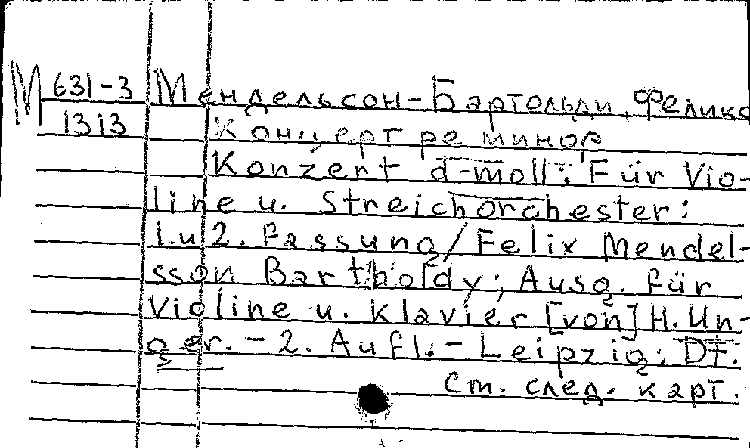 М 631-3 Мендельсон-Бартольди, Феликс
1313 Концерт ре минор
Konzert d-moll; Für Vio-
line u. Streichorchester:
1.u 2. Fassung/Felix Mendel-
sson Bartholdy; Ausg. für
Violine u. Klavier [von] H. Un-
ger. - 2. Aufl. - Leipzig: Dt.
См. след. карт.